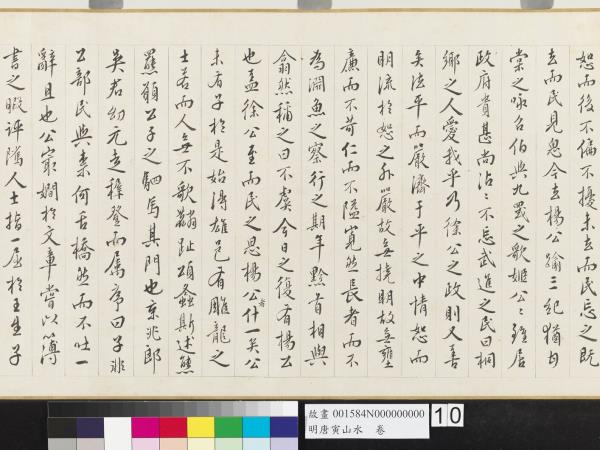 恕而後不偏不擾未去而民忘之既
去而民見思今去楊公踰三紀猶甘
棠之咏召伯與九罭之歌姬公公雖居
政府貴甚尚沾沾不忘武進之民曰桐
鄉之人愛我乎乃徐公之政則又善
矣法平而嚴濟于平之中情恕而
明流於恕之外嚴故無撓明故無壅
廉而不苛仁而不隘寬然長者而不
為淵魚之察行之期年黔首相與
翕然稱之曰不虞今日之復有楊公
也蓋徐公至而民之思楊公者什一矣公
未有子於是始得雄邑有雕龍之
士若而人無不歌麟趾頌螽斯述熊
羆頟公子之駟馬其門也京兆郎
吳君幼元走穉登而屬序曰子非
公部民與柰何舌橋然而不吐一
辭且也公最嫻於文章嘗以簿
書之暇評隲人士指一屈於王生子
故畫 001584N000000000
明唐寅山水 卷
10